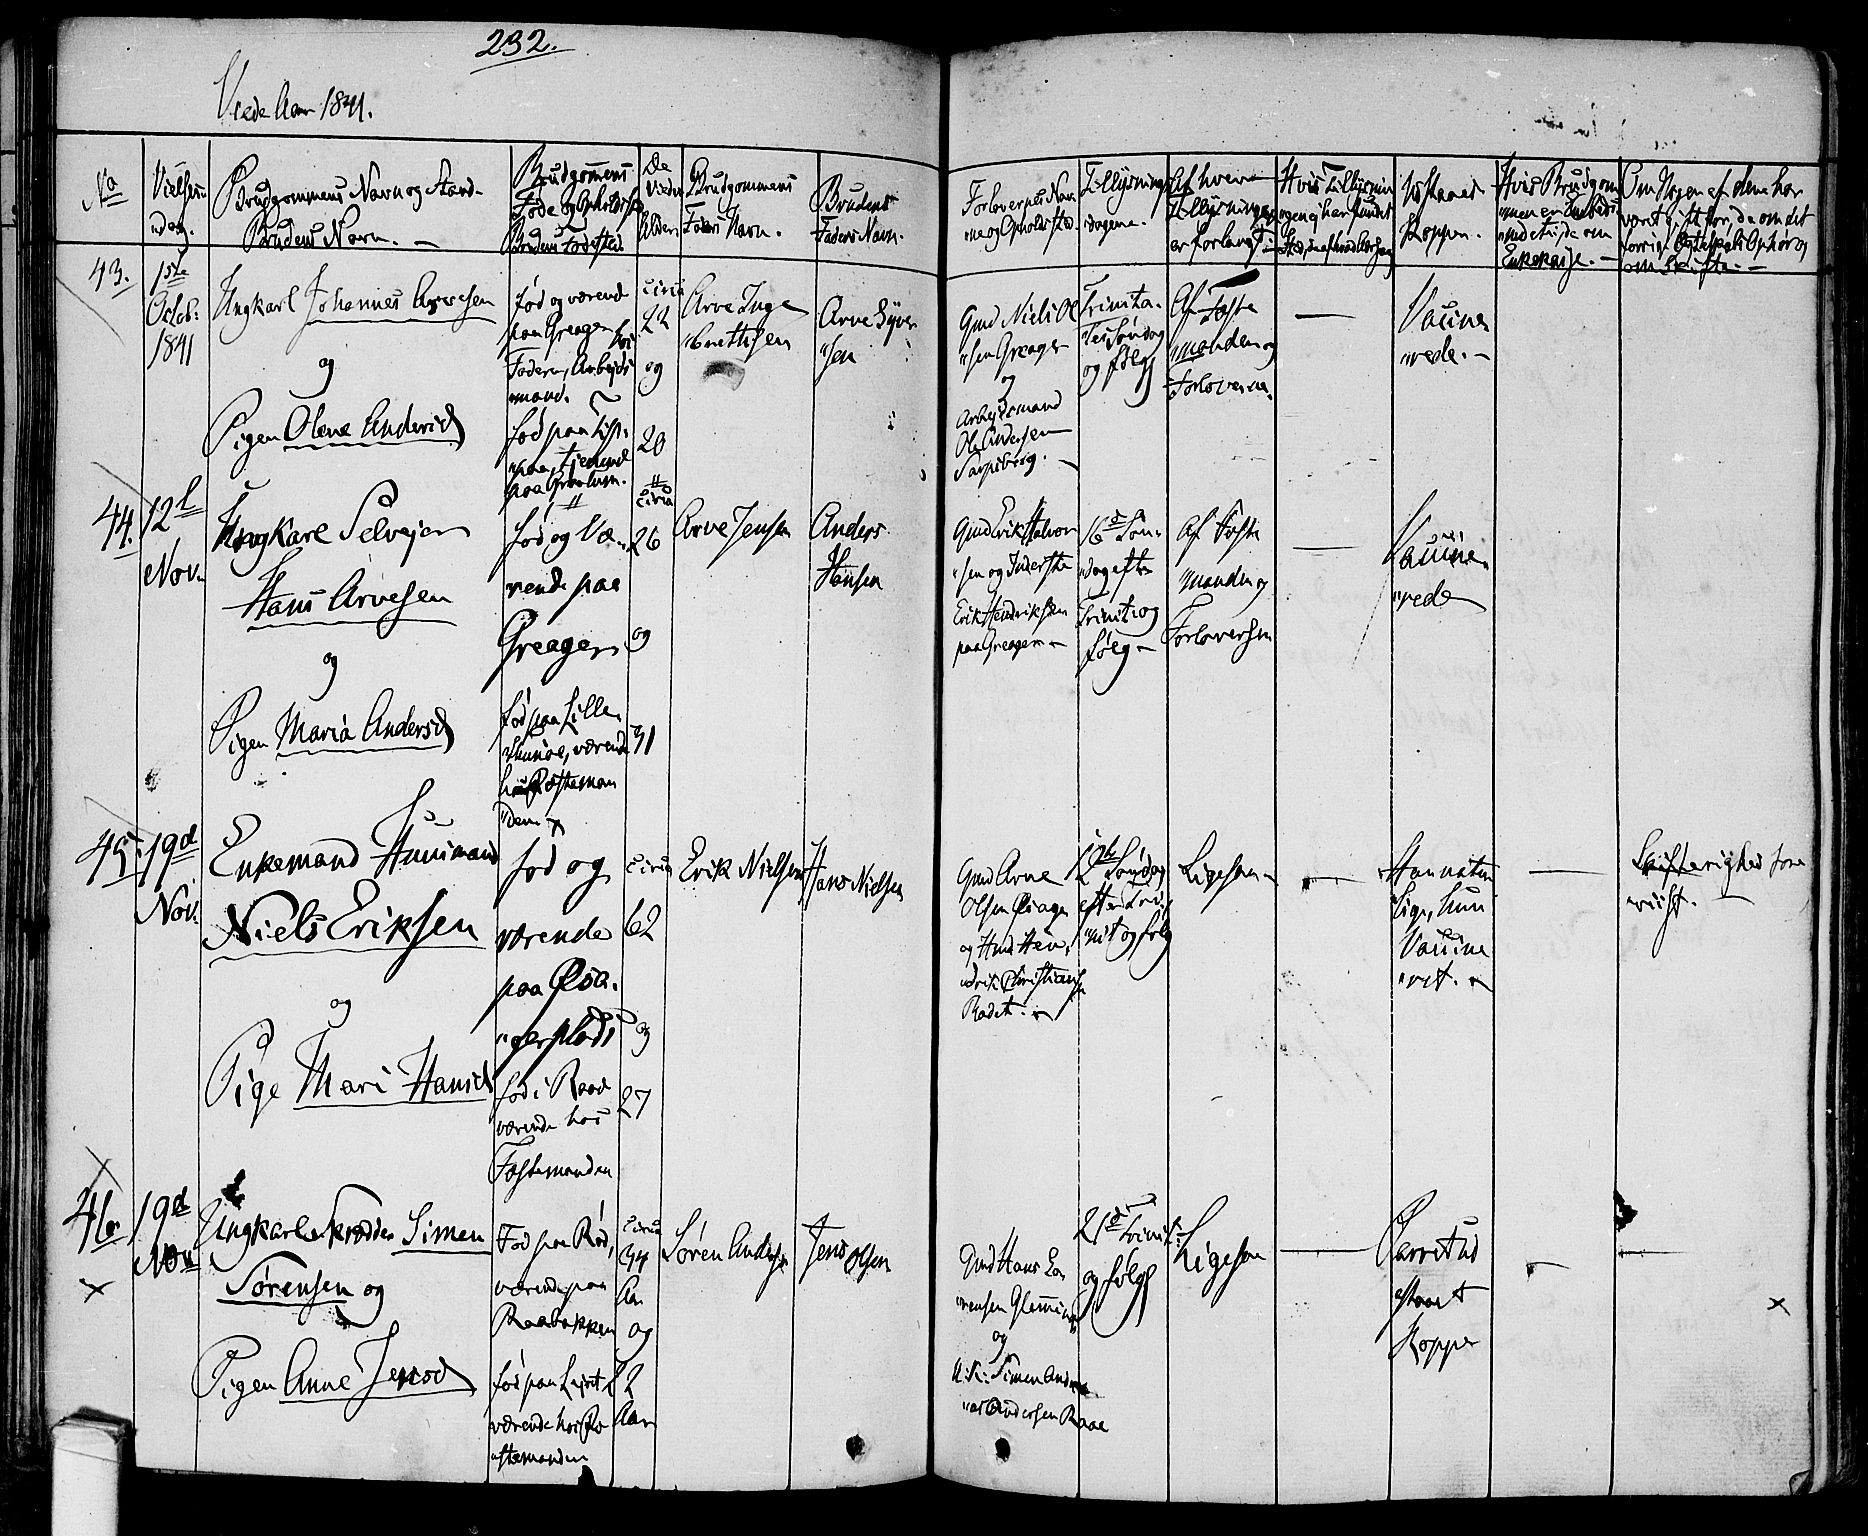 232.
Viede Aar 1841.
No
Vielses-
"dag.
Brudgommens Navn og Stand-
Brudens Navn. -
Brudgommens
Føde og Opholdssted
Brudens Fødested
De
Viedes
Alder
Brudgommens
Faders Navn.
Brudens
Faders Navn.
Forlovernes Nav-
"ne og Opholdsted.
Tillysnings
"dagene.
Af hvem
Tillysningen
er forlangt
Hvis Tillysnin-
ogen ei har fundet
Sted,
Vaccineret
Kopper.
Hvis Brudgom-
"men er Embeds-
om
Enkekasse. -
Om Nogen af dem har
vært gift før, da om det
Ophør og
om Skifte. -
43.
1ste
Octob:
1841
Ungkarl Johannes Arvesen
og
Pigen Olene Andersd
fød og værend
paa Greager hos
Faderen, Arbeids
"mand.
fød paa
"paa, tjenend
paa Grælum.
circa
22
og
20
Arve Inge
"brettsen
Arve Syver
"sen
Gmd Niels Ol
"sen Greager
og
Arbeidsmand
Ole Andersen
Sarpsborg. -
Trinita-
"tes Søndag
og følg
Af Fæste
"manden og
Forloverne.
-
Vaccine
"rede. -
44.
12te
Nov.
Ungkarl Selveier
Hans Arvesen
og
Pigen Maria Andersd
fød og Væ-
"rende paa
Greager
fød paa Lille
værende
hos Fæsteman
"den
circa
26
og
31
Arve Jensen
Anders
Hansen
Gmd Erik Halvor
"sen og Inderste
Erik Hendriksen
paa Greager -
16d Søn-
"dag efter
Trinit: og
følg -
Af Fæste
"manden og
Forloverne
-
Vaccine
"rede
45.
19d
Nov.
Enkemand Huusmand
Niels Eriksen
og
Pige Mari Hansd
fød og
værende
paa Opsa-
"gerplads
fød i Raae
værende hos
Fæstemanden
circa
62
og
27
Erik Nielsen
Hans Nielsen
Gmd Arne
Olsen
og Hmd Hen-
"drik Christiansen
Rødet. -
12te Søndag
efter Tri-
"nit og følg
Ligesaa -
-
Han natur-
lige, hun
Vaccine
"ret. -
-
Skifterighed fore
"viist. -
46
19d
Nov
Ungkarl Skrædder Simen
Sørensen og
Pigen Anne Jensd
Fød paa Rød,
værende paa
Raabakken
fød paa
værende hos Fæ
"stemanden
circa
34
Aar
og
22
Aar
Søren Anders
Jens Olsen
Gmd Hans Lo
"rensen Glemmin
og
Simen Andrea
"as Andersen Raae
21d Trinit.
og følg
Ligesaa
-
Parret ud
"staaet
Kopper
-
-